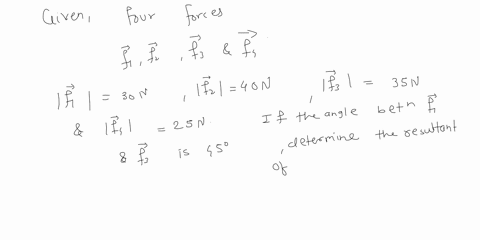 Given, four forces
f₁, f₂, f₃ & f₄
|f₁| = 30N, |f₂| = 40N, |f₃| = 35N
& |f₄| = 25N. If the angle betn f₁
& f₃ is 45°, determine the resultant
of